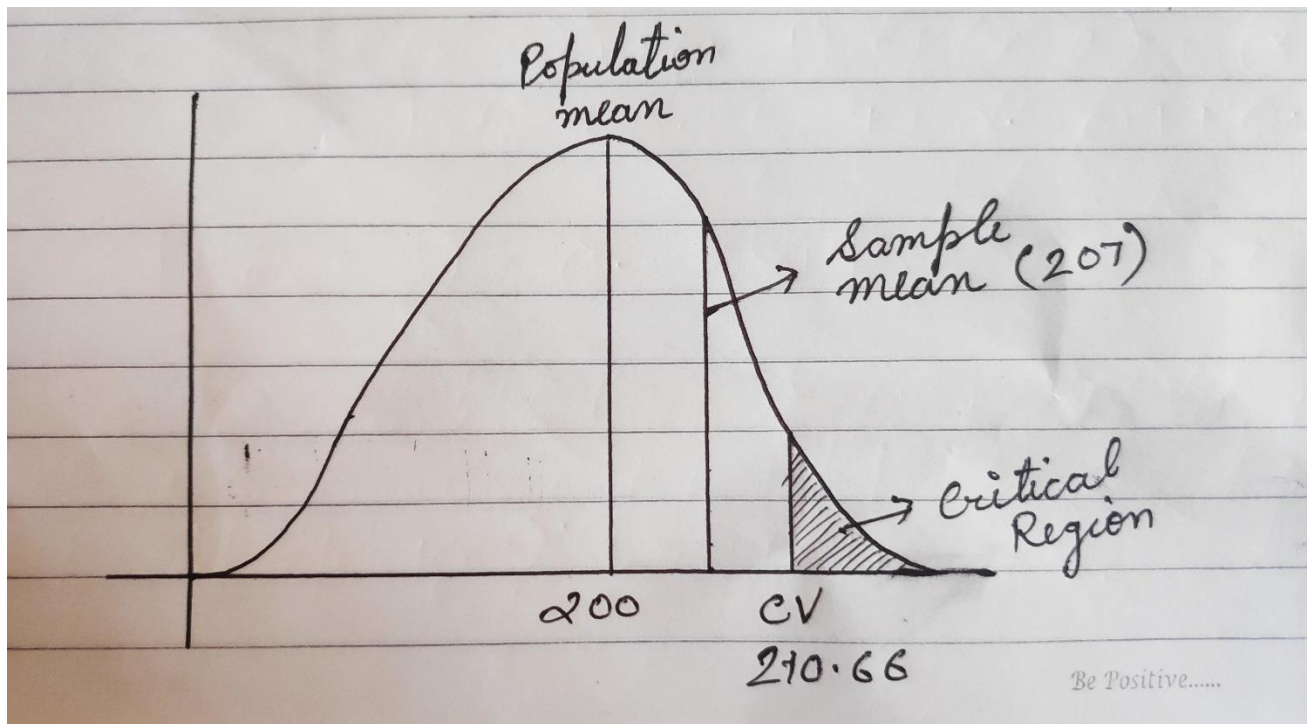 Population
mean
Sample
mean (207)
Critical
Region
200
CV
210.66
Be Positive......